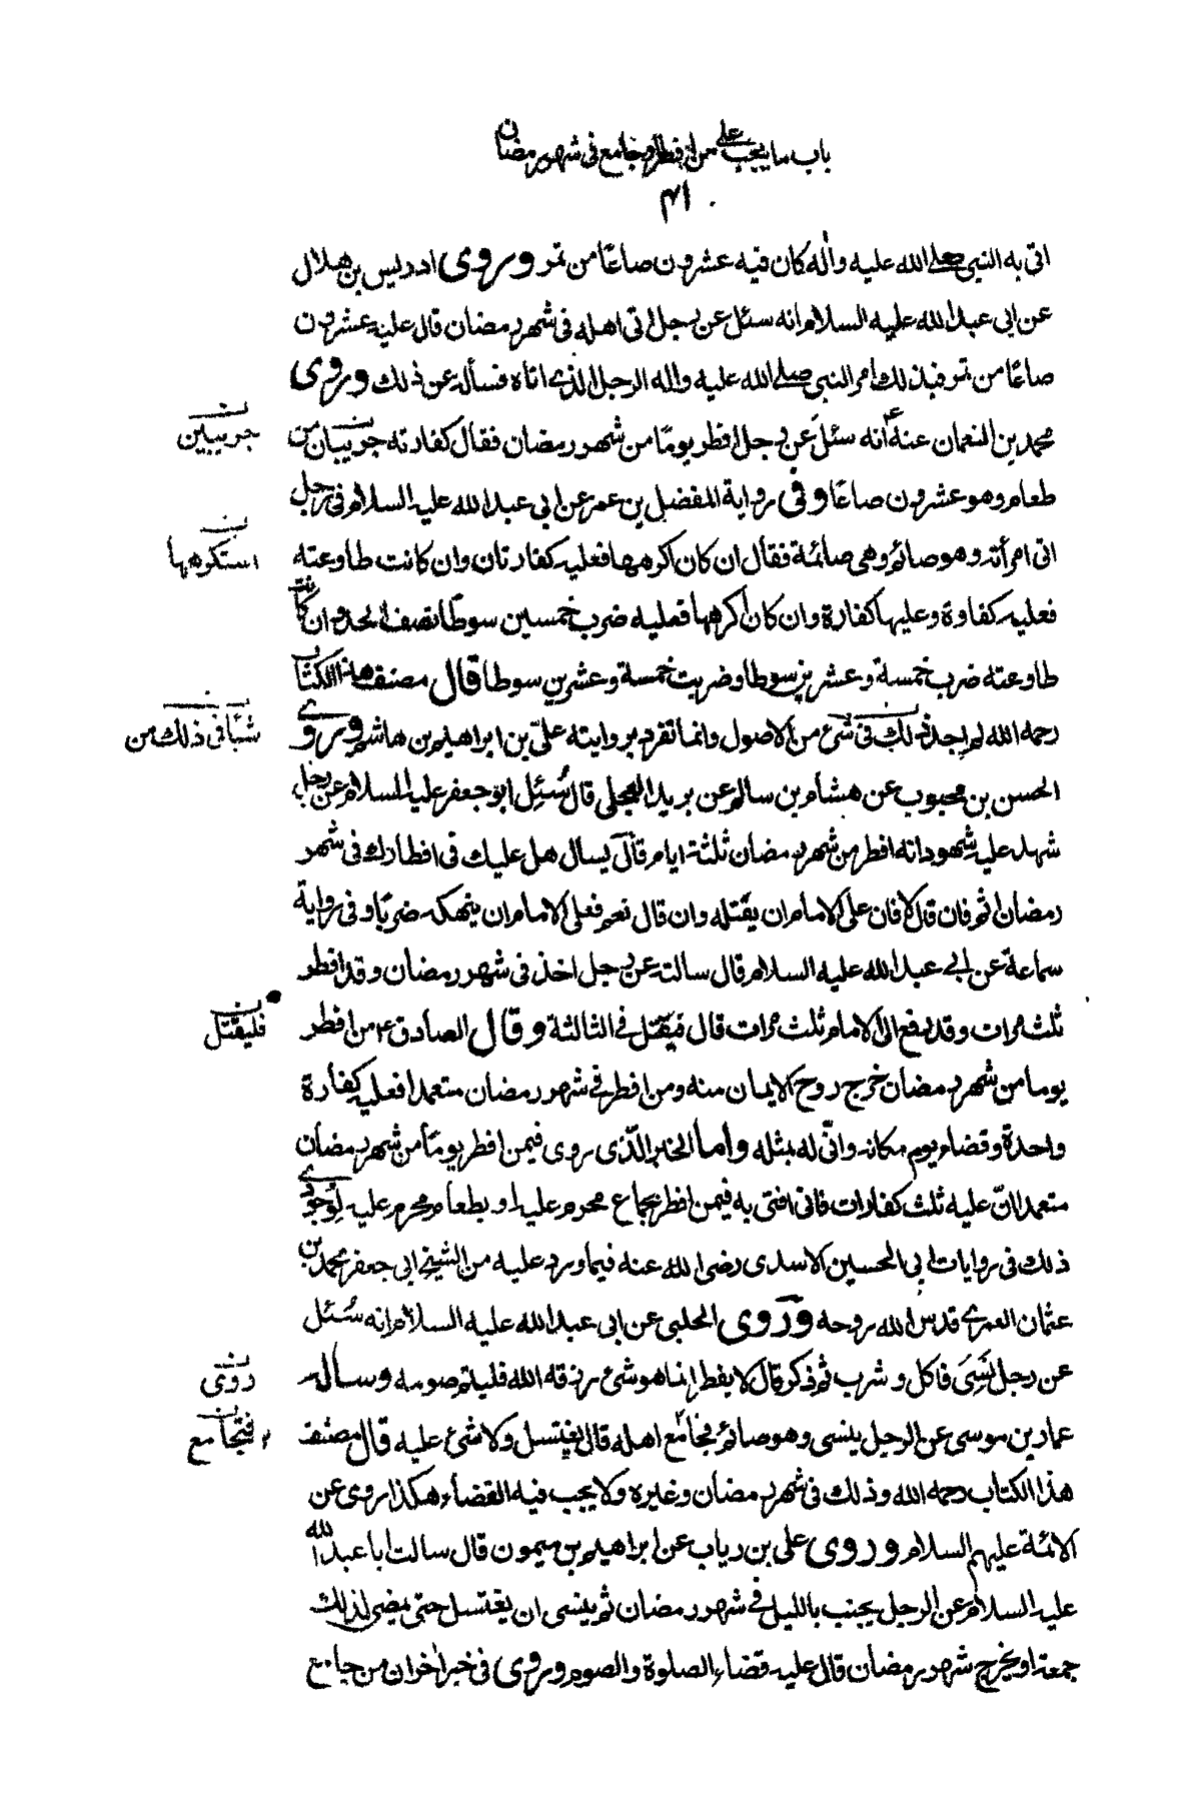 باب ما يجب على من افطر او جامع فى شهر رمضان
۴۱
اتى به النبى صلى الله عليه وآله كان فيه عشرون صاعًا من تمر وروى ادريس بن هلال
عن ابى عبد الله عليه السلام انه سئل عن رجل اتى اهله فى شهر رمضان قال عليه عشرون
صاعًا من تمر فبذلك امر النبى صلى الله عليه واله الرجل الذى اتاه فسأله عن ذلك وروى
محمد بن النعمان عنه ع انه سئل عن رجل افطر يومًا من شهر رمضان فقال كفارته جريبان من
جريبين
طعام وهو عشرون صاعًا وفى رواية المفضل بن عمر عن ابى عبد الله عليه السلام فى رجل
اتى امرأته وهو صائم وهى صائمة فقال ان كان اكرهها فعليه كفارتان وان كانت طاوعته
استكرهها
فعليه كفارة وعليها كفارة وان كان اكرهها فعليه ضرب خمسين سوطًا نصف الحد وان كانت
طاوعته ضرب خمسة وعشرين سوطا وضربت خمسة وعشرين سوطا قال مصنف هذا الكتاب
رحمه الله لم اجد ذلك فى شئ من الاصول وانما تفرد بروايته على بن ابراهيم بن هاشم وروى
شيئا فى ذلك من
الحسن بن محبوب عن هشام بن سالم عن بريد العجلى قال سُئِل ابو جعفر عليه السلام عن رجل
شهد عليه شهود انه افطر من شهر رمضان ثلثة ايام قال يسال هل عليك فى افطارك فى شهر
رمضان اثم فان قال لا فان على الامام ان يقتله وان قال نعم فعلى الامام ان ينهكه ضربًا وفى رواية
سماعة عن ابى عبد الله عليه السلام قال سالته عن رجل اخذ فى شهر رمضان وقد افطر
ثلث مرات وقد رفع الى الامام ثلث مرات قال فيقتل فى الثالثة وقال الصادق ع من افطر
فليقتل
يوما من شهر رمضان خرج روح الايمان منه ومن افطر فى شهر رمضان متعمدا فعليه كفارة
واحدة وقضاء يوم مكانه وانّى له بمثله واما الخبر الّذى روى فيمن افطر يومًا من شهر رمضان
متعمدا انّ عليه ثلث كفارات فانى افتى به فيمن افطر بجماع محرم عليه او بطعام محرم عليه لوجود
ذلك فى روايات ابى الحسين الاسدى رضى الله عنه فيما ورد عليه من الشيخ ابى جعفر محمد بن
عثمان العمرى قدس الله روحه وروى الحلبى عن ابى عبد الله عليه السلام انه سُئل
عن رجل نَسِىَ فاكل وشرب ثم ذكر قال لا يفطر انما هو شئ رزقه الله فليتم صومه وساله
روى
عمار بن موسى عن الرجل ينسى وهو صائم فجامع اهله قال يغتسل ولا شئ عليه قال مصنف
فتجامع
هذا الكتاب رحمه الله وذلك فى شهر رمضان وغيره ولا يجب فيه القضاء هكذا روى عن
الائمة عليهم السلام وروى على بن رياب عن ابراهيم بن ميمون قال سالت ابا عبد الله
عليه السلام عن الرجل يجنب بالليل فى شهر رمضان ثم ينسى ان يغتسل حتى يمضى لذلك
جمعة او يخرج شهر رمضان قال عليه قضاء الصلوة والصوم وروى فى خبر اخر ان من جامع